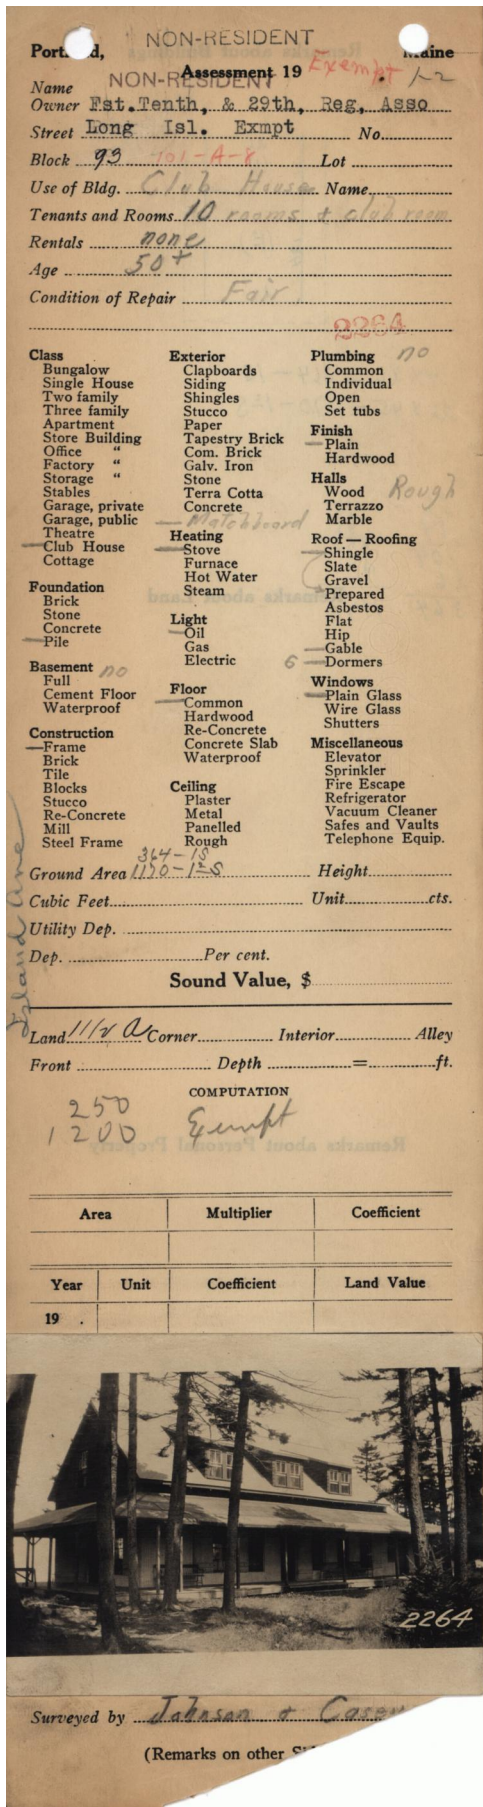 NON-RESIDENT
Portland, Maine
Assessment 19 Exempt 1-2
NON-RESIDENT
Name
Owner Fst.Tenth, & 29th, Reg, Asso
Street Long Isl. Exmpt No.
Block 93 101-A-8 Lot
Use of Bldg. Club House Name
Tenants and Rooms 10 rooms + club room
Rentals none
Age 50+
Condition of Repair Fair
2264
Class
Bungalow
Single House
Two family
Three family
Apartment
Store Building
Office "
Factory "
Storage "
Stables
Garage, private
Garage, public
Theatre
Club House
Cottage
Foundation
Brick
Stone
Concrete
Pile
Basement no
Full
Cement Floor
Waterproof
Construction
Frame
Brick
Tile
Blocks
Stucco
Re-Concrete
Mill
Steel Frame
Exterior
Clapboards
Siding
Shingles
Stucco
Paper
Tapestry Brick
Com. Brick
Galv. Iron
Stone
Terra Cotta
Concrete
Matchboard
Heating
Stove
Furnace
Hot Water
Steam
Light
Oil
Gas
Electric
Floor
Common
Hardwood
Re-Concrete
Concrete Slab
Waterproof
Ceiling
Plaster
Metal
Panelled
Rough
Plumbing no
Common
Individual
Open
Set tubs
Finish
Plain
Hardwood
Halls
Wood Rough
Terrazzo
Marble
Roof — Roofing
Shingle
Slate
Gravel
Prepared
Asbestos
Flat
Hip
Gable
6 Dormers
Windows
Plain Glass
Wire Glass
Shutters
Miscellaneous
Elevator
Sprinkler
Fire Escape
Refrigerator
Vacuum Cleaner
Safes and Vaults
Telephone Equip.
364-1S
Ground Area 1170-1½S Height
Cubic Feet Unit cts.
Utility Dep.
Dep. Per cent.
Sound Value, $
Island Ave
Land 1 1/2 a Corner Interior Alley
Front Depth = ft.
COMPUTATION
250
1200 Exempt
Area Multiplier Coefficient
Year Unit Coefficient Land Value
19 .
2264
Surveyed by Johnson + Casey
(Remarks on other